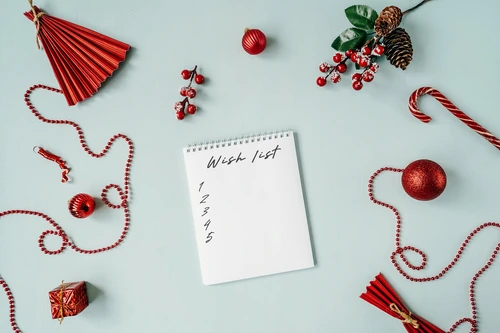 Wish list
1
2
3
4
5